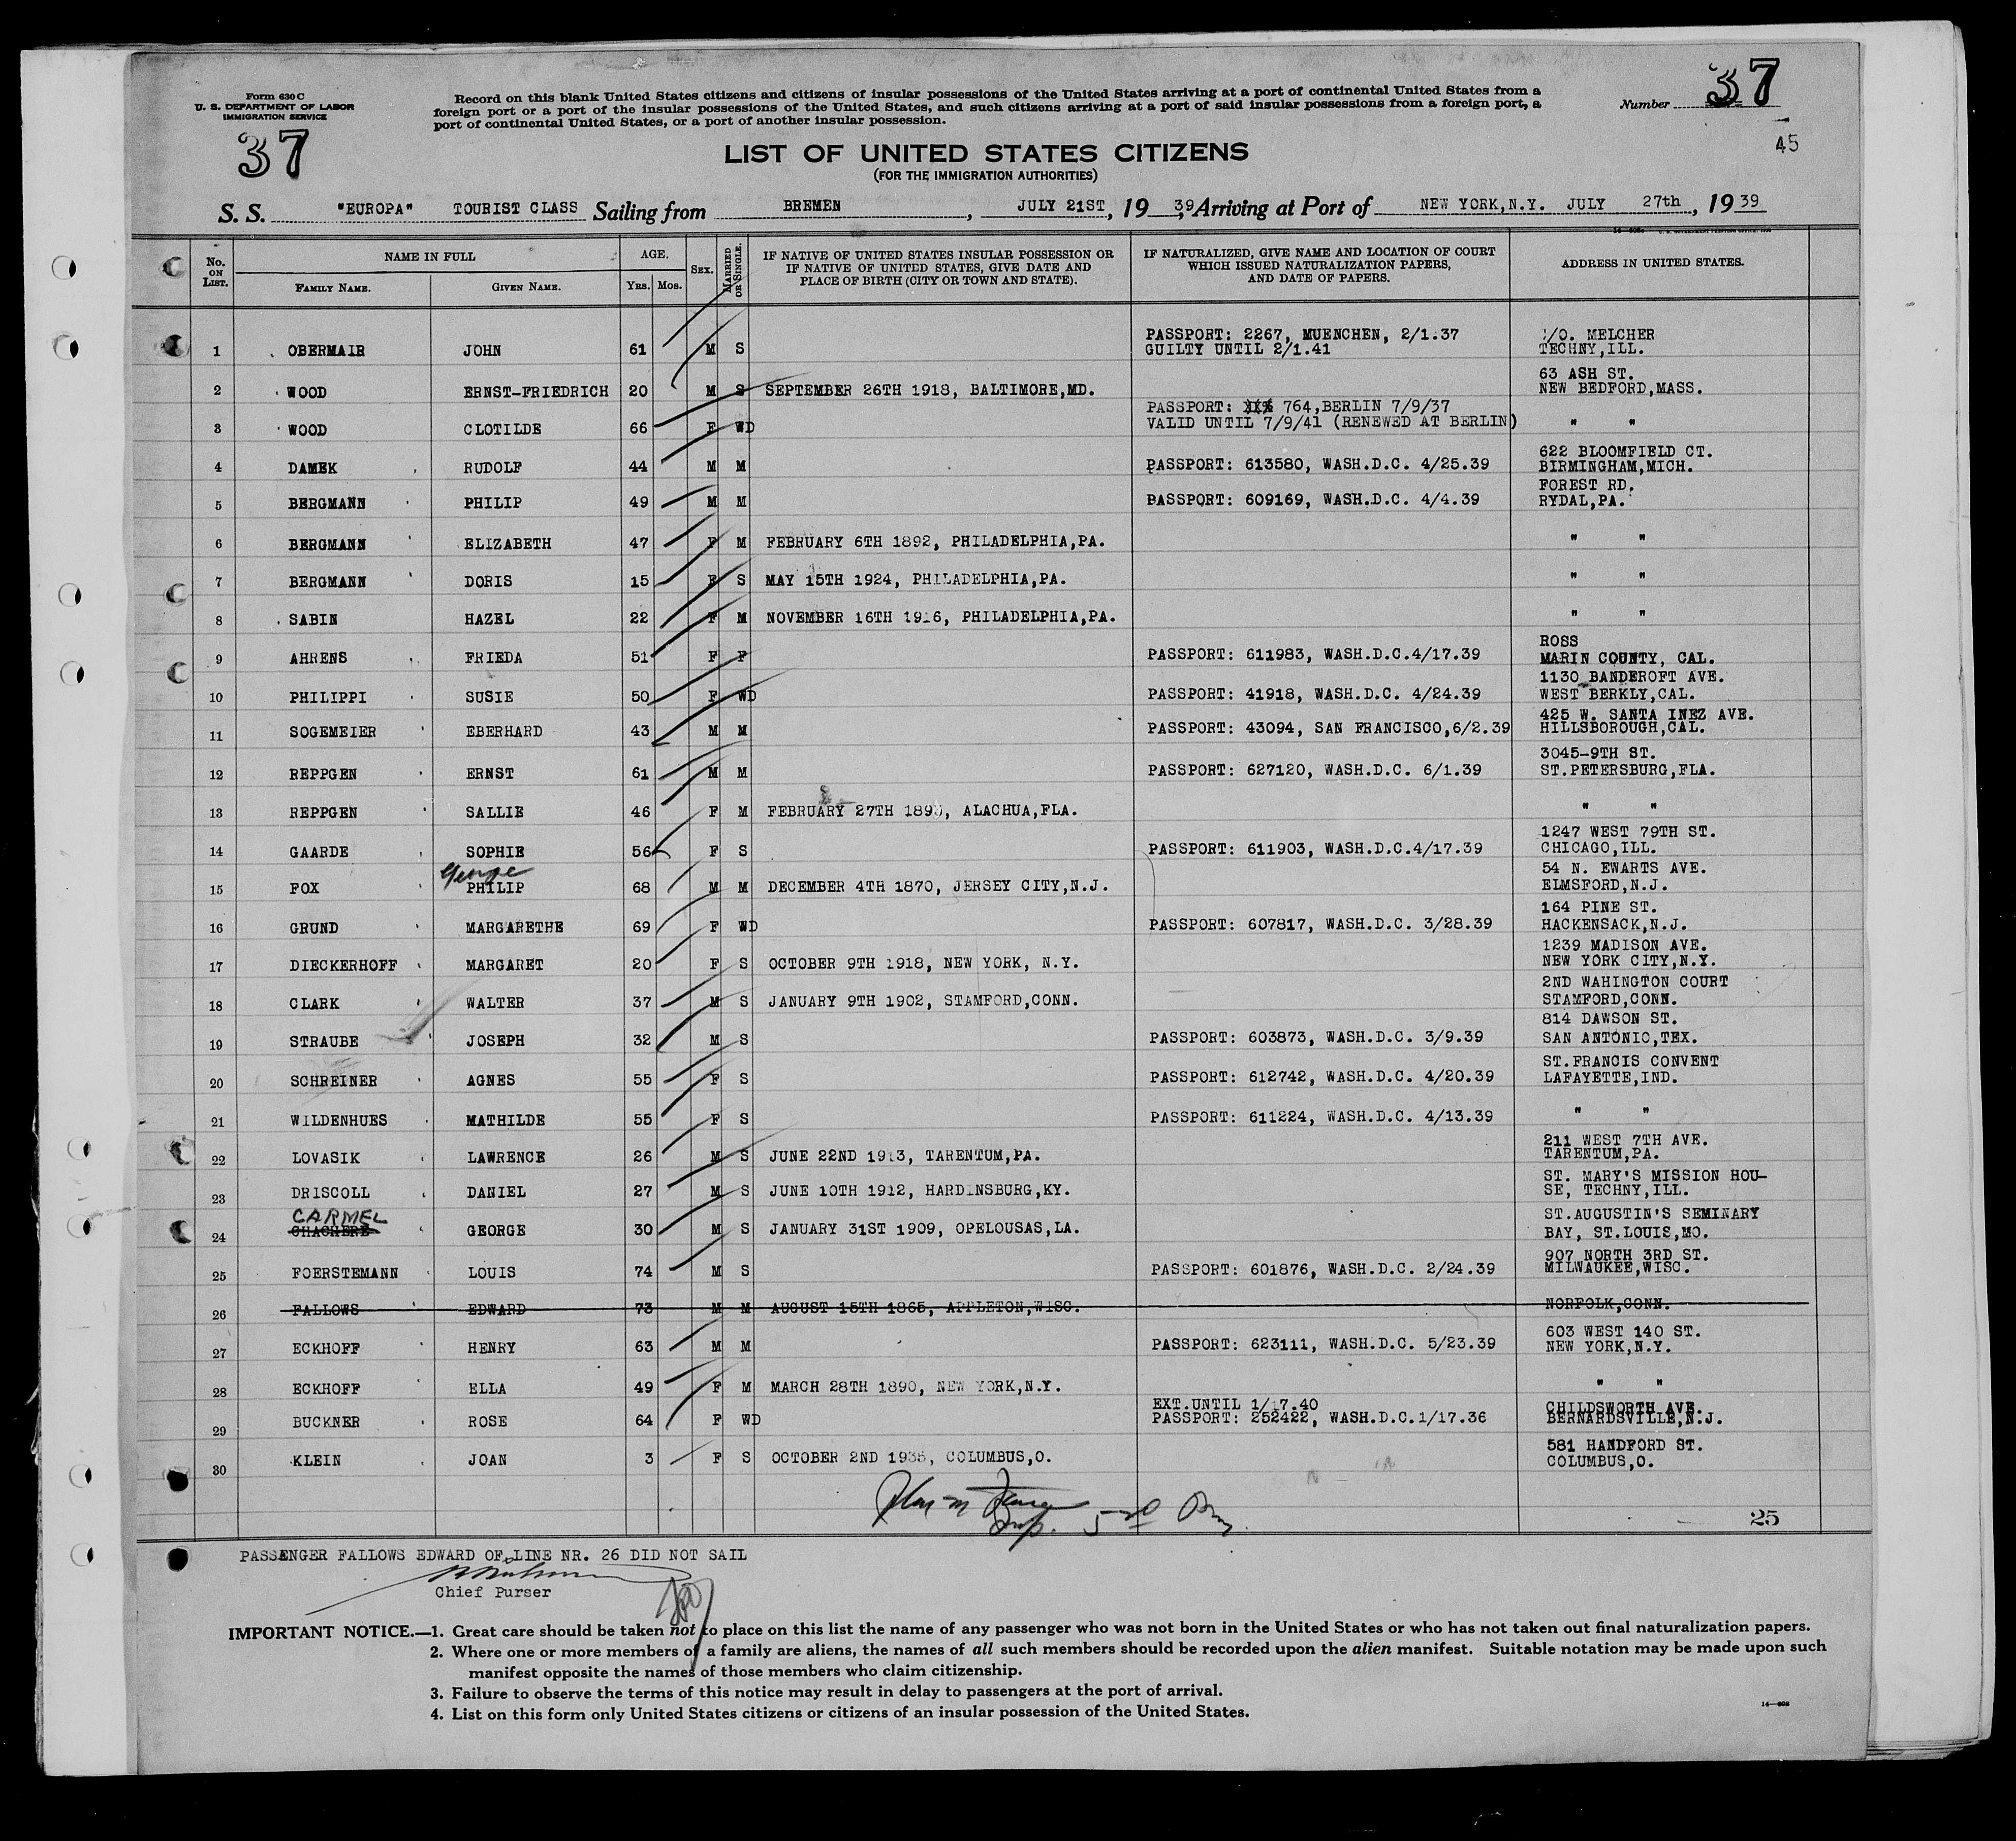 Form 630 C
U. S. DEPARTMENT OF LABOR
IMMIGRATION SERVICE
37
Record on this blank United States citizens and citizens of insular possessions of the United States arriving at a port of continental United States from a
foreign port or a port of the insular possessions of the United States, and such citizens arriving at a port of said insular possessions from a foreign port, a
port of continental United States, or a port of another insular possession.
Number 37
45
LIST OF UNITED STATES CITIZENS
(FOR THE IMMIGRATION AUTHORITIES)
S. S. "EUROPA" TOURIST CLASS Sailing from BREMEN, JULY 21ST, 1939, Arriving at Port of NEW YORK,N.Y. JULY 27th, 1939
No. ON LIST. NAME IN FULL FAMILY NAME. GIVEN NAME. AGE. YRS. MOS. SEX. MARRIED OR SINGLE. IF NATIVE OF UNITED STATES INSULAR POSSESSION OR IF NATIVE OF UNITED STATES, GIVE DATE AND PLACE OF BIRTH (CITY OR TOWN AND STATE). IF NATURALIZED, GIVE NAME AND LOCATION OF COURT WHICH ISSUED NATURALIZATION PAPERS, AND DATE OF PAPERS. ADDRESS IN UNITED STATES.
PASSPORT: 2267, MUENCHEN, 2/1.37 /O. MELCHER
1 OBERMAIR JOHN 61 M S GUILTY UNTIL 2/1.41 TECHNY,ILL.
63 ASH ST.
2 WOOD ERNST-FRIEDRICH 20 M S SEPTEMBER 26TH 1918, BALTIMORE,MD. NEW BEDFORD,MASS.
PASSPORT: 764,BERLIN 7/9/37
3 WOOD CLOTILDE 66 F WD VALID UNTIL 7/9/41 (RENEWED AT BERLIN) " "
622 BLOOMFIELD CT.
4 DAMEK RUDOLF 44 M M PASSPORT: 613580, WASH.D.C. 4/25.39 BIRMINGHAM,MICH.
FOREST RD.
5 BERGMANN PHILIP 49 M M PASSPORT: 609169, WASH.D.C. 4/4.39 RYDAL,PA.
6 BERGMANN ELIZABETH 47 F M FEBRUARY 6TH 1892, PHILADELPHIA,PA. " "
7 BERGMANN DORIS 15 F S MAY 15TH 1924, PHILADELPHIA,PA. " "
8 SABIN HAZEL 22 F M NOVEMBER 16TH 1916, PHILADELPHIA,PA. " "
ROSS
9 AHRENS FRIEDA 51 F F PASSPORT: 611983, WASH.D.C.4/17.39 MARIN COUNTY, CAL.
1130 BANDEROFT AVE.
10 PHILIPPI SUSIE 50 F WD PASSPORT: 41918, WASH.D.C. 4/24.39 WEST BERKLY,CAL.
425 W. SANTA INEZ AVE.
11 SOGEMEIER EBERHARD 43 M M PASSPORT: 43094, SAN FRANCISCO,6/2.39 HILLSBOROUGH,CAL.
3045-9TH ST.
12 REPPGEN ERNST 61 M M PASSPORT: 627120, WASH.D.C. 6/1.39 ST.PETERSBURG,FLA.
13 REPPGEN SALLIE 46 F M FEBRUARY 27TH ALACHUA,FLA. " "
1247 WEST 79TH ST.
14 GAARDE SOPHIE 56 F S PASSPORT: 611903, WASH.D.C.4/17.39 CHICAGO,ILL.
George 54 N. EWARTS AVE.
15 FOX PHILIP 68 M M DECEMBER 4TH 1870, JERSEY CITY,N.J. ELMSFORD,N.J.
164 PINE ST.
16 GRUND MARGARETHE 69 F WD PASSPORT: 607817, WASH.D.C. 3/28.39 HACKENSACK,N.J.
1239 MADISON AVE.
17 DIECKERHOFF MARGARET 20 F S OCTOBER 9TH 1918, NEW YORK, N.Y. NEW YORK CITY,N.Y.
2ND WAHINGTON COURT
18 CLARK WALTER 37 M S JANUARY 9TH 1902, STAMFORD,CONN. STAMFORD,CONN.
814 DAWSON ST.
19 STRAUBE JOSEPH 32 M S PASSPORT: 603873, WASH.D.C. 3/9.39 SAN ANTONIO,TEX.
ST.FRANCIS CONVENT
20 SCHREINER AGNES 55 F S PASSPORT: 612742, WASH.D.C. 4/20.39 LAFAYETTE,IND.
21 WILDENHUES MATHILDE 55 F S PASSPORT: 611224, WASH.D.C. 4/13.39 " "
211 WEST 7TH AVE.
22 LOVASIK LAWRENCE 26 M S JUNE 22ND 1913, TARENTUM,PA. TARENTUM,PA.
ST. MARY'S MISSION HOU-
23 DRISCOLL DANIEL 27 M S JUNE 10TH 1912, HARDINSBURG,KY. SE, TECHNY,ILL.
CARMEL ST.AUGUSTIN'S SEMINARY
24 CHACHERE GEORGE 30 M S JANUARY 31ST 1909, OPELOUSAS,LA. BAY, ST.LOUIS,MO.
907 NORTH 3RD ST.
25 FOERSTEMANN LOUIS 74 M S PASSPORT: 601876, WASH.D.C. 2/24.39 MILWAUKEE,WISC.
26 FALLOWS EDWARD 73 M M AUGUST 15TH 1865, APPLETON,WISC. NORFOLK,CONN.
603 WEST 140 ST.
27 ECKHOFF HENRY 63 M M PASSPORT: 623111, WASH.D.C. 5/23.39 NEW YORK,N.Y.
28 ECKHOFF ELLA 49 F M MARCH 28TH 1890, NEW YORK,N.Y. " "
EXT.UNTIL 1/17.40 CHILDSWORTH AVE.
29 BUCKNER ROSE 64 F WD PASSPORT: 252422, WASH.D.C.1/17.36 BERNARDSVILLE,N.J.
581 HANDFORD ST.
30 KLEIN JOAN 3 F S OCTOBER 2ND 1935, COLUMBUS,O. COLUMBUS,O.
25
PASSENGER FALLOWS EDWARD OF LINE NR. 26 DID NOT SAIL
Chief Purser
IMPORTANT NOTICE.—1. Great care should be taken not to place on this list the name of any passenger who was not born in the United States or who has not taken out final naturalization papers.
2. Where one or more members of a family are aliens, the names of all such members should be recorded upon the alien manifest. Suitable notation may be made upon such
manifest opposite the names of those members who claim citizenship.
3. Failure to observe the terms of this notice may result in delay to passengers at the port of arrival.
4. List on this form only United States citizens or citizens of an insular possession of the United States.